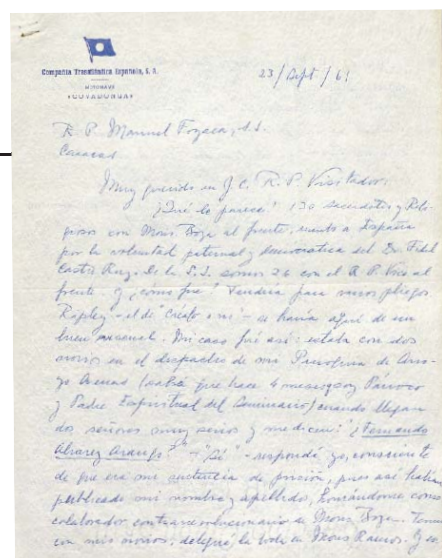 Compañía Trasatlántica Española, S. A.
MOTONAVE
"COVADONGA"
23/Sept/61
R. P. Manuel Foyaca, s.i.
Caracas
Muy querido en J.C. R. P. Visitador:
¡Qué le parece! 130 sacerdotes y Reli-
giosos con Mons Boza al frente, rumbo a España
por la voluntad paternal y democrática del Dr. Fidel
Castro Ruz. De la S.J. somos 26 con el R. P. Vice al
frente y ¡cómo fue! Tendría para varios pliegos.
Ripley - el de "Créalo o no" - se haría aquí de un
buen arsenal. Mi caso fué así: estaba con dos
novios en el despacho de mi Parroquia de Arro-
yo Arenas (sabrá que hace 4 meses soy Párroco
y Padre Espiritual del Seminario) cuando llegan
dos señores muy serios y me dicen: ¿Fernando
Alvarez Arango? - "Sí" - respondí yo, consciente
de que era mi sentencia de prisión, pues así habían
publicado mi nombre y apellido, tomándome como
colaborador contrarevolucionario de Mons Boza. Termi
con mis novios, delegué la boda en Mons Ramos. Y co